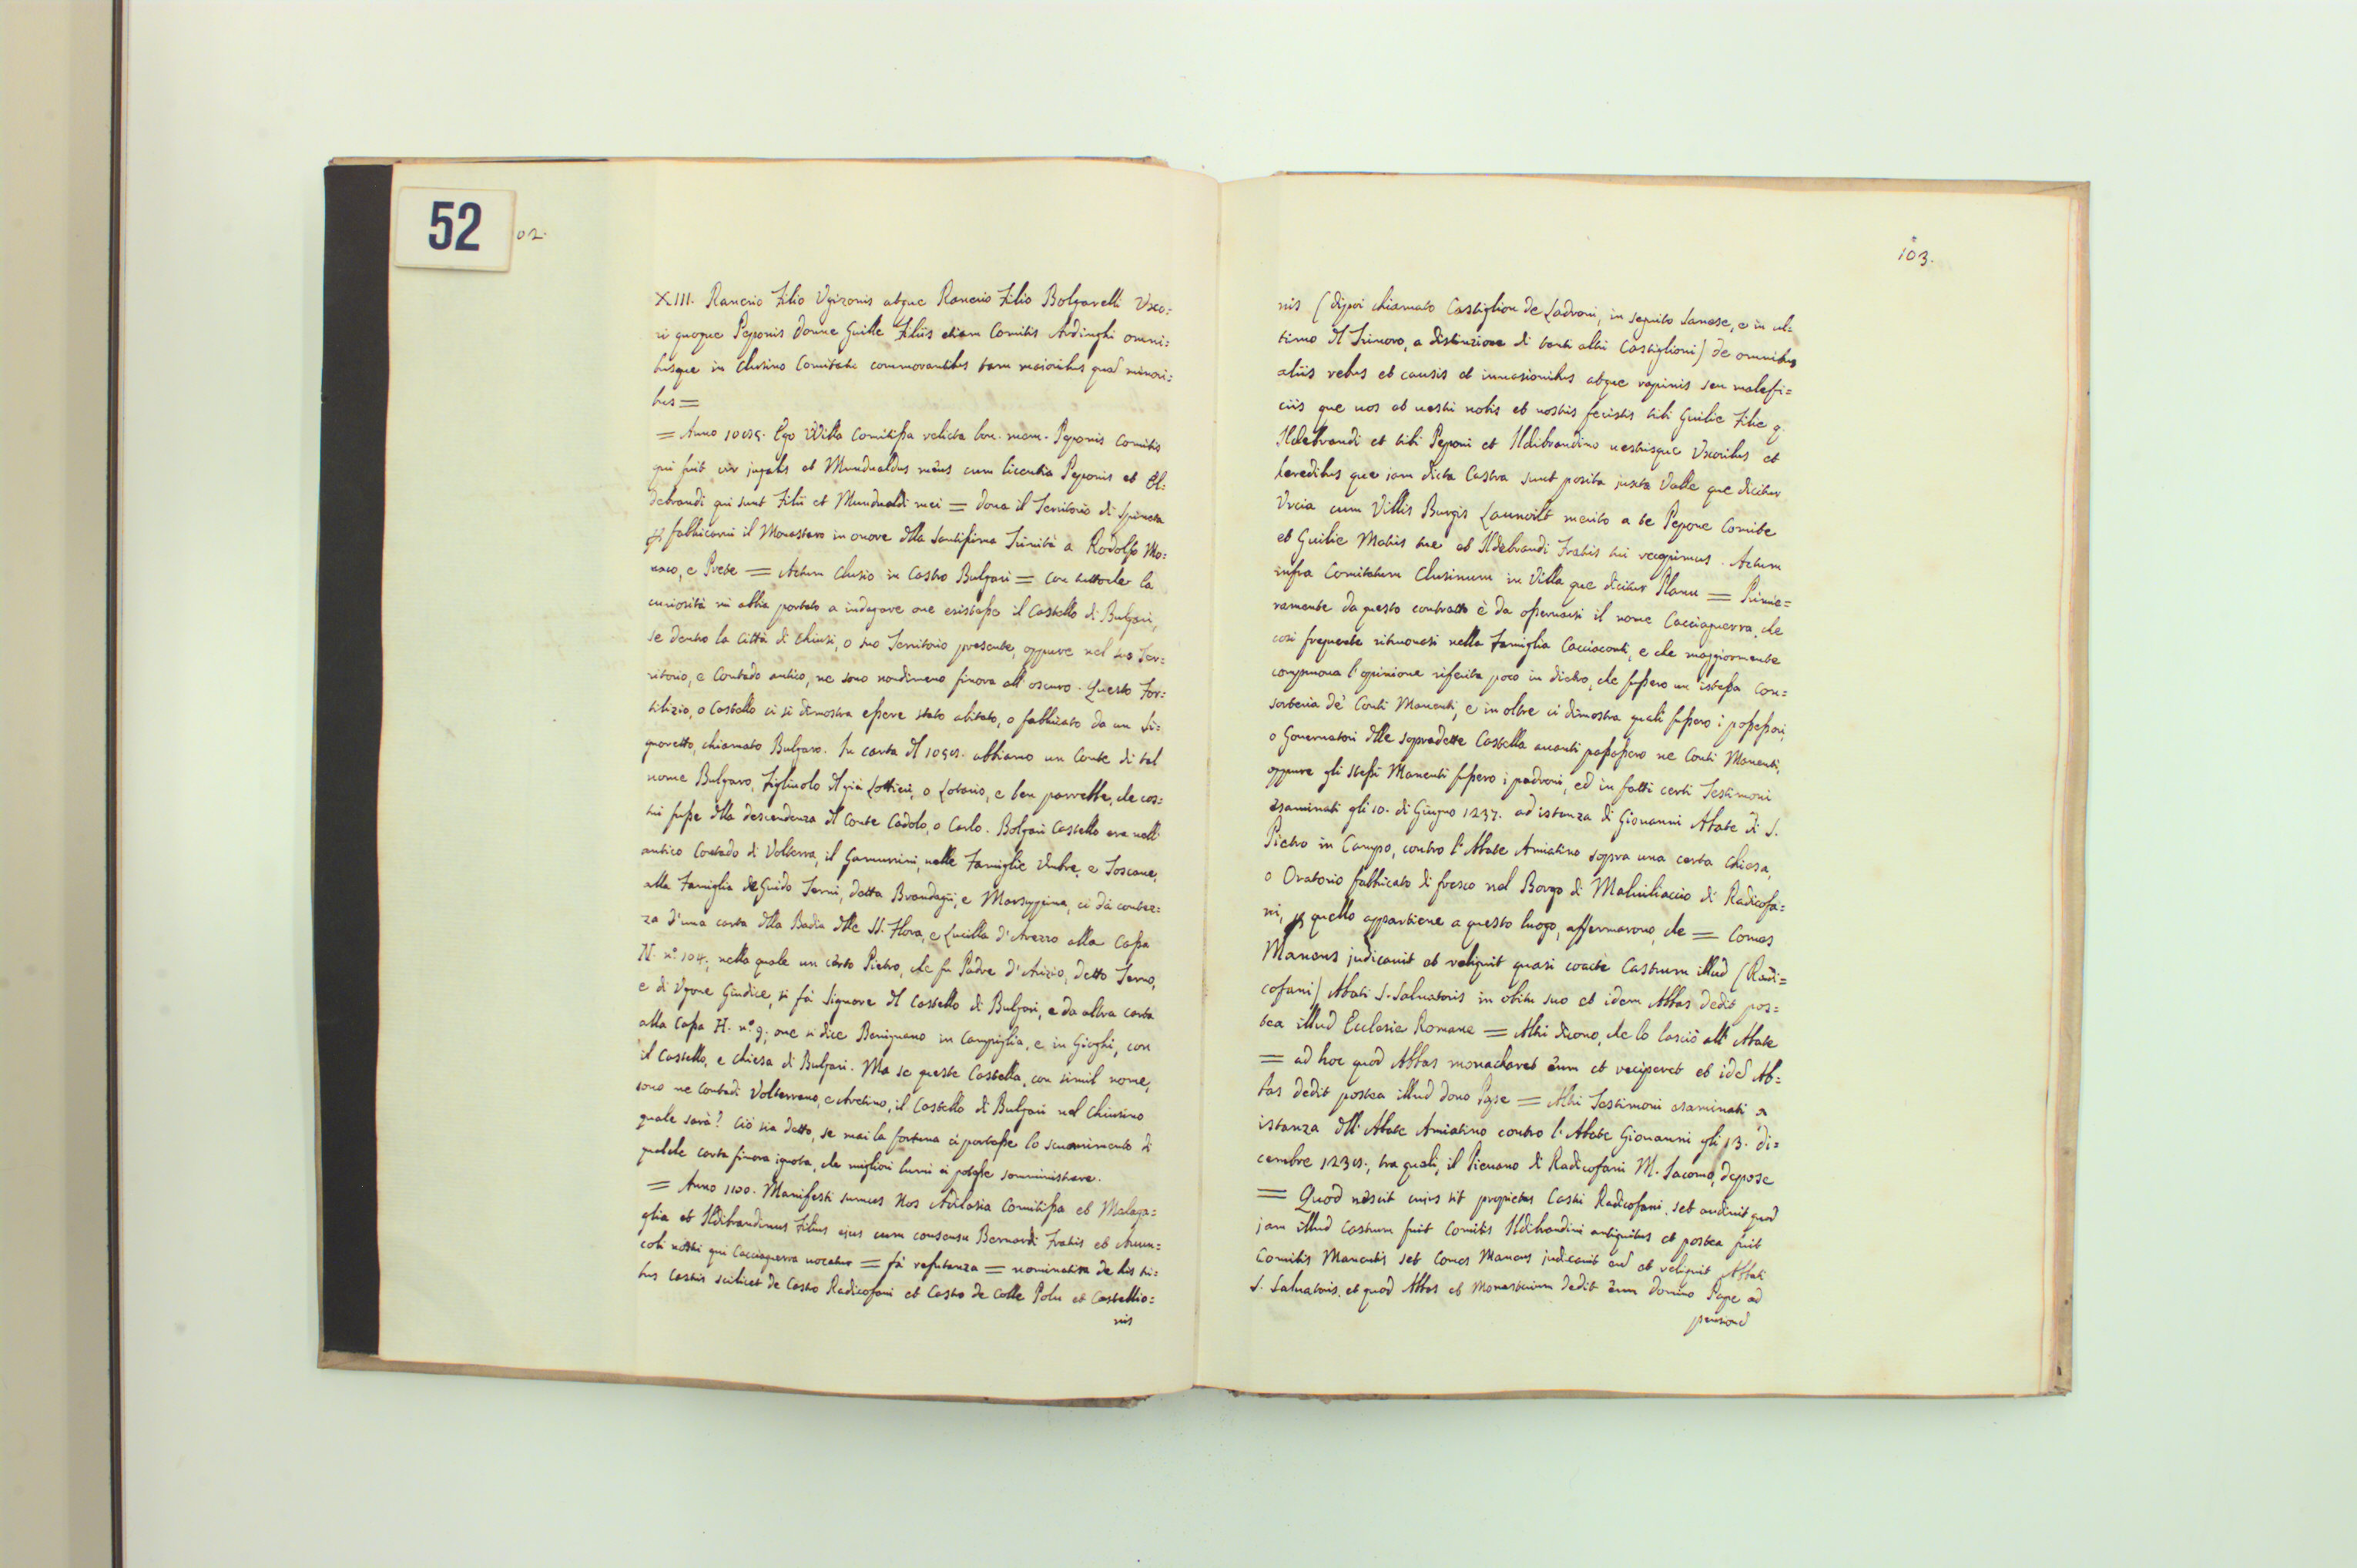 52
02.
XIII. Ranerio Filio Vgizonis atque Ranerio Filio Bolgarelli Vxo=
ri quoque Peponis donne Guille Filiis etiam Comitis Ardinghi omni=
busque in Clusino Comitatu commorantibus tam maioribus quaḋ minori=
bus =
= Anno Ego Willa Comitissa relicta bon. mem. Peponis Comitis
qui fuit vir jugalis et Mundualdus meus cum licentia Peponis et Il=
debrandi qui sunt Filii et Mundualdi mei = dona il Territorio di Spineta
p fabbricarvi il Monastero in onore dlla Santissima Trinità a Rodolfo Mo=
naco, e Prete = Actum Clusio in Castro Bulgari = Con tuttoche la
curiosità mi abbia portato a indagare oue esistesse il Castello di Bulgari,
se dentro la Città di Chiusi, o suo Territorio presente, oppure nel suo Ter=
ritorio, e Contado antico, ne sono nondimeno finora all' oscuro. Questo For=
tilizio, o Castello ci si dimostra essere stato abitato, o fabbricato da un Si=
gnoretto, chiamato Bulgaro. In carta dl abbiamo un Conte di tal
nome Bulgaro, Figliuolo dl già Lottieri, o Lotario, e ben parrebbe, che cos=
tui fusse dlla descendenza dl Conte Cadolo, o Carlo. Bolgari Castello era nell'
antico Contado di Volterra, il Gamurrini, nelle Famiglie Umbre, e Toscane,
alla Famiglia de Guido Terni, detta Brandagli, e Marsuppina, ci dà contez=
za d'una carta dlla Badia dlle SS. Flora, e Lucilla d'Arezzo alla Cassa
N. n.º 104., nella quale un certo Pietro, che fu Padre d'Arizio, detto Terno,
e di Vgone Giudice, si fà Signore dl Castello di Bulgari, e da altra carta
alla Cassa H. n.º 9; oue si dice Benignano in Campiglia, e in Gioghi, con
il Castello, e Chiesa di Bulgari. Ma se queste Castella, con simil nome,
sono ne Contadi Volterrano, e Aretino, il Castello di Bulgari nel Chiusino
quale sarà? Ciò sia detto, se mai la fortuna ci portasse lo scuoprimento di
qualche carta finora ignota, che migliori lumi ci potesse somministrare.
= Anno 1100. Manifesti sumus Nos Adilasia Comitissa et Malaga=
glia et Ildibrandinus Filius ejus cum consensu Bernardi Fratris et Auun=
coli nostri qui Cacciaguerra uocatur = fà refutanza = nominativa de his tri=
bus Castris scilicet de Castro Radicofani et Castro de Colle Polu et Castellio=
nis
103.
nis (dippoi chiamato Castiglion de Ladroni, in seguito Sanese, e in ul=
timo dl Trinoro, a distinzione di tanti altri Castiglioni) de omnibus
aliis rebus et causis et inuasionibus atque rapinis seu malefi=
ciis que uos et uestri nobis et nostris fecistis tibi Guilie Filie q.
Ildebrandi et tibi Peponi et Ildibrandino uestrisque Vxoribus et
heredibus que jam dicta Castra sunt posita juxta Valle que dicitur
Vrcia cum Villis Burgis Launoilt merito a te Pepone Comite
et Guilie Matris tue et Ildebrandi Fratris tui recepimus. Actum
infra Comitatum Clusinum in Villa que dicitur Planu = Prime=
ramente da questo contratto è da osseruarsi il nome Cacciaguerra, che
così frequente ritruouasi nella Famiglia Cacciaconti, e che maggiormente
comproua l'opinione riferita poco in dietro, che fussero un istessa Con=
sorteria de' Conti Manenti, e in oltre ci dimostra quali fussero i possessori,
o Gouernatori dlle sopradette Castella auanti passassero ne Conti Manenti,
oppure gli stessi Manenti fussero i padroni, ed in fatti certi Testimoni
esaminati gli 10. di Giugno 1237. ad istanza di Giouanni Abate di S.
Pietro in Campo, contro l'Abate Amiatino sopra una certa Chiesa,
o Oratorio fabbricato di fresco nel Borgo di Maluiliaccio di Radicofa=
ni, p quello appartiene a questo luogo, affermarono, che = Comes
Manens judicauit et reliquit quasi coacte Castrum illud (Radi=
cofani) Abati S. Saluatoris in obitu suo et idem Abbas dedit pos=
tea illud Ecclesie Romane = Altri dicono, che lo lasciò all' Abate
= ad hoc quod Abbas monacharet eum et reciperet et ideḋ Ab=
bas dedit postea illud dono Pape = Altri Testimoni esaminati a
istanza dll' Abate Amiatino contro l'Abate Giouanni gli 13. Di=
cembre, tra quali, il Pieuano di Radicofani M. Jacomo, depose
= Quod nescit cuius sit proprietas Castri Radicofani, set audiuit quod
jam illud Castrum fuit Comitis Ildibrandini antiquitus et postea fuit
Comitis Manentis set Comes Manens judicauit eud et reliquit Abbati
S. Saluatoris, et quod Abbas et Monasterium dedit eum domino Pape ad
pensioneḋ